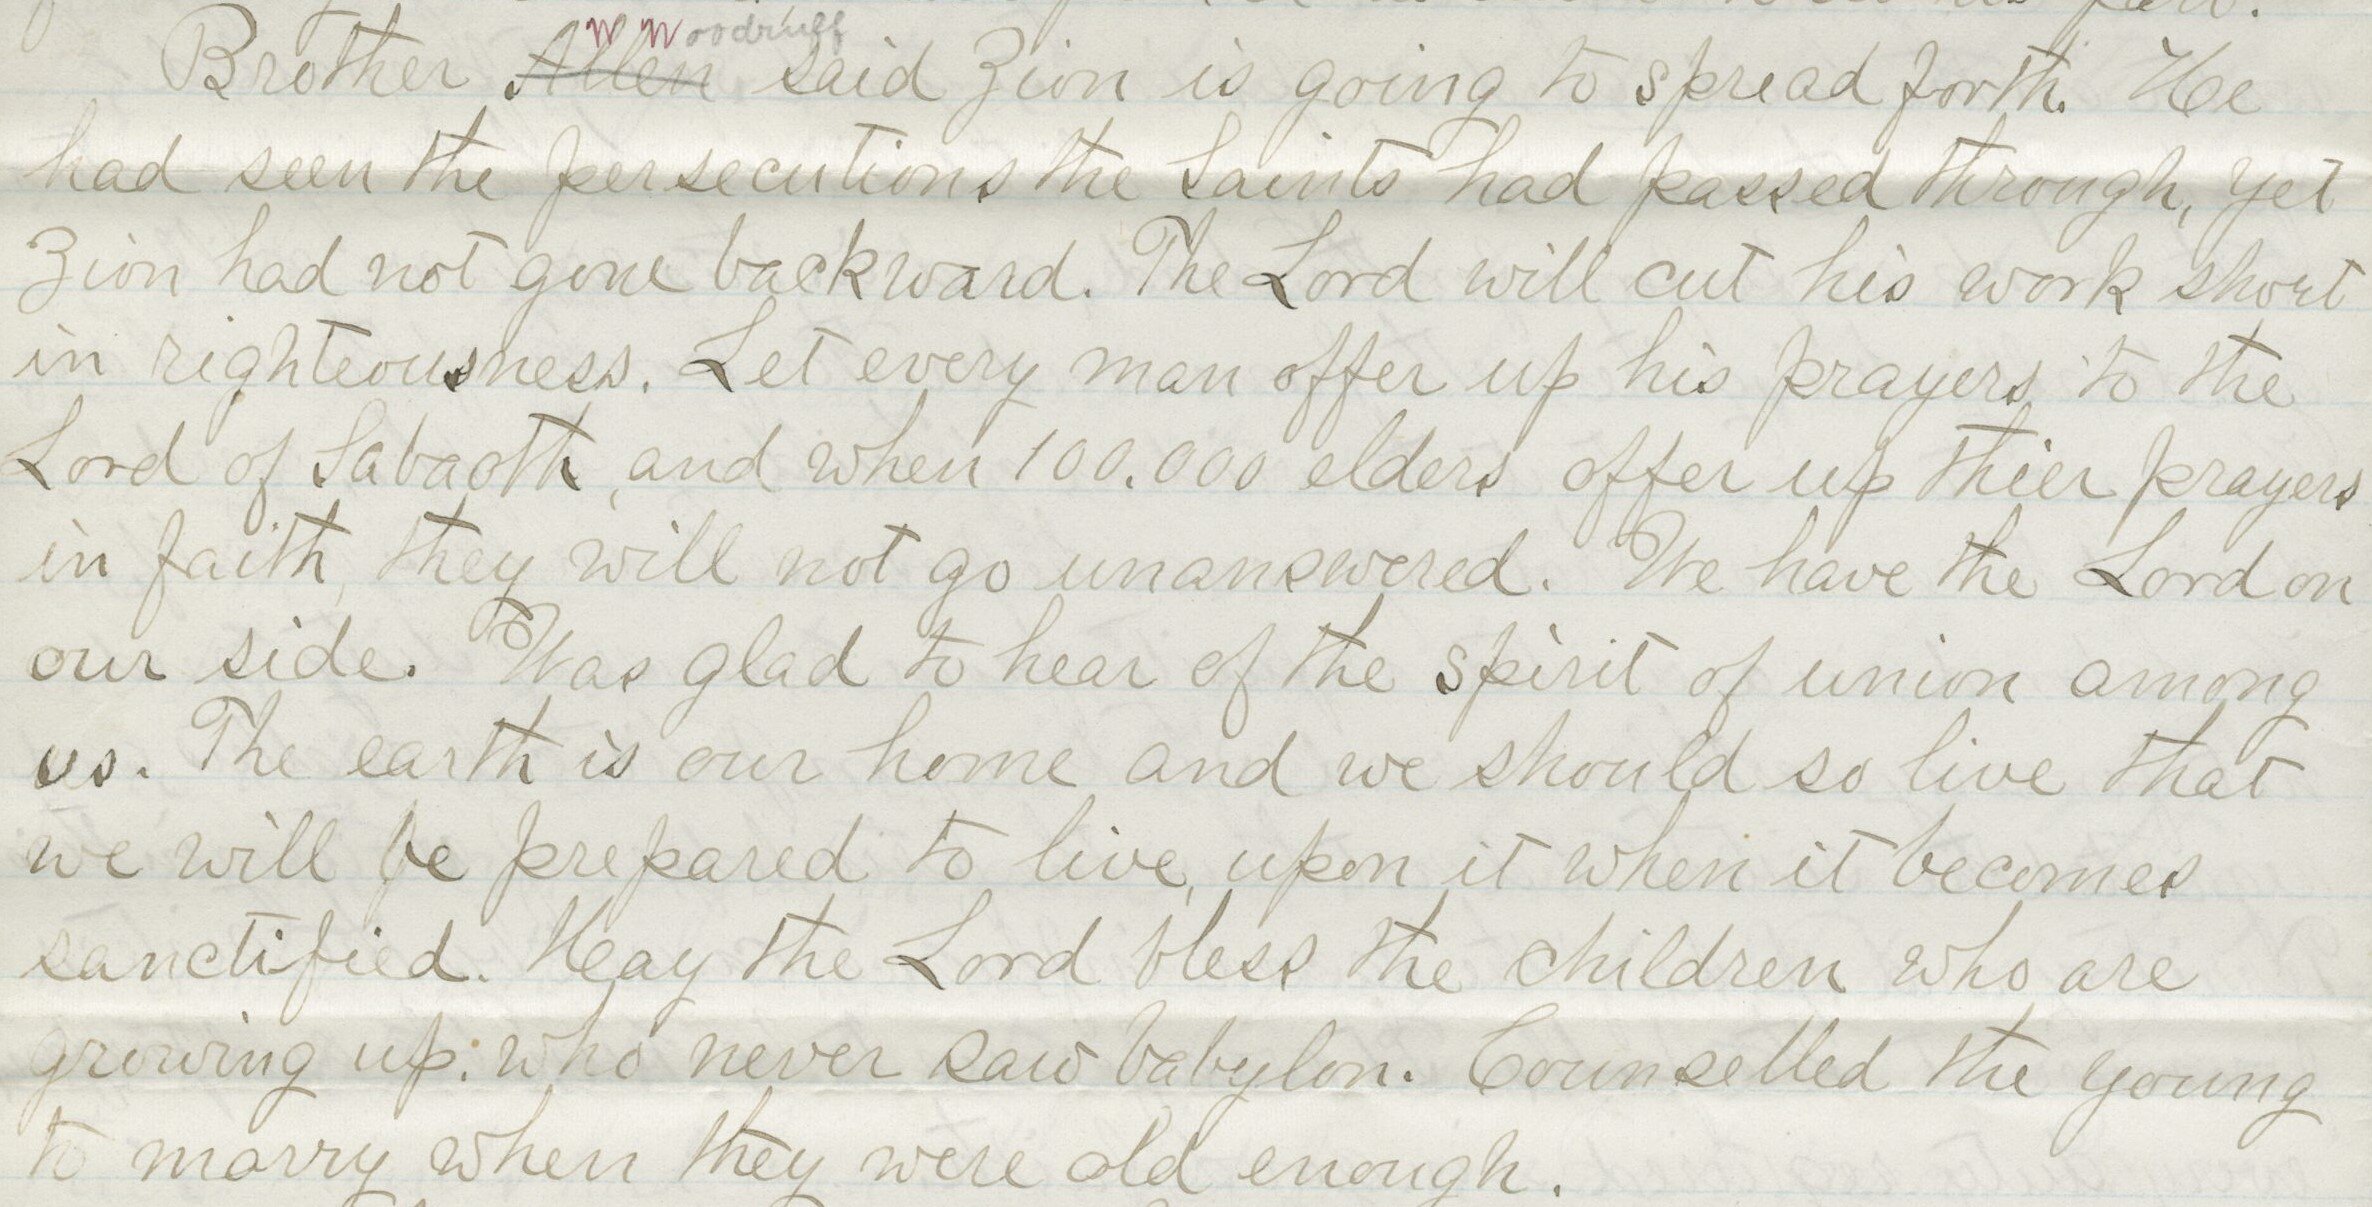 W Woodruff
Brother Allen said Zion is going to spread forth. He
had seen the persecutions the Saints had passed through, yet
Zion had not gone backward. The Lord will cut his work short
in righteousness. Let every man offer up his prayers to the
Lord of Sabaoth, and when 100.000 elders offer up thier prayers
in faith, they will not go unanswered. We have the Lord on
our side. Was glad to hear of the spirit of union among
us. The earth is our home and we should so live that
we will be prepared to live, upon it when it becomes
sanctified. May the Lord bless the children who are
growing up: who never saw babylon. Counselled the young
to marry when they were old enough.